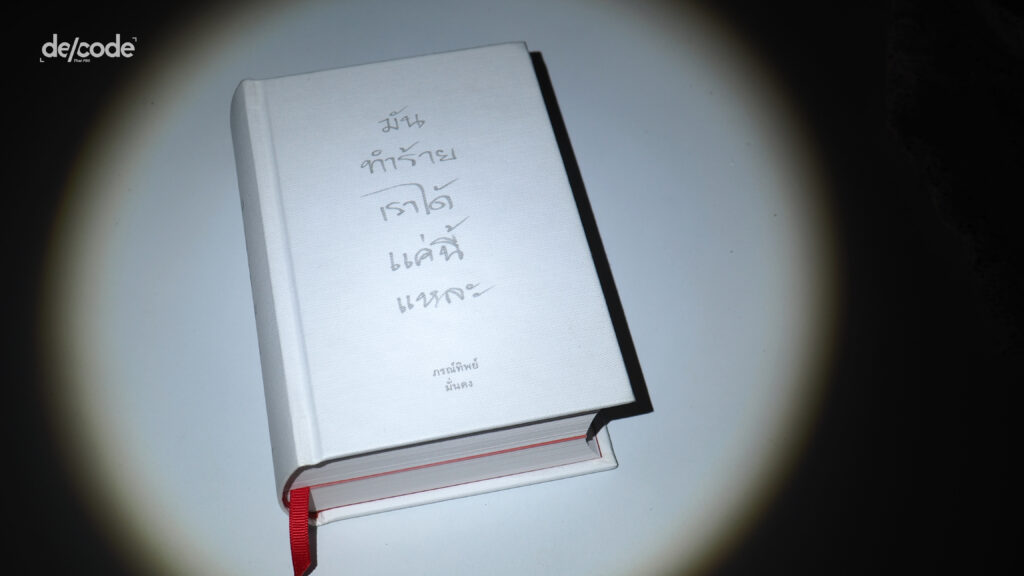 de/code
Thai PBS
มัน
ทำร้าย
เราได้
แค่นี้
แหละ
ภรณ์ทิพย์
มั่นคง